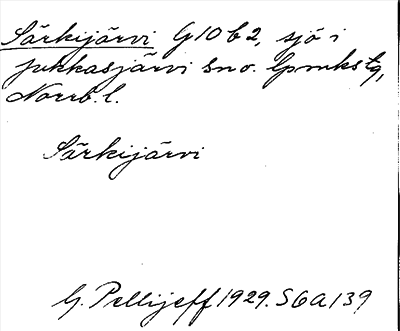 Särkijärvi G10b2, sjö i
Jukkasjärvi sn o. lpmkstg,
Norrb. l.
Särkijärvi
G. Pellijeff 1929. S6A139